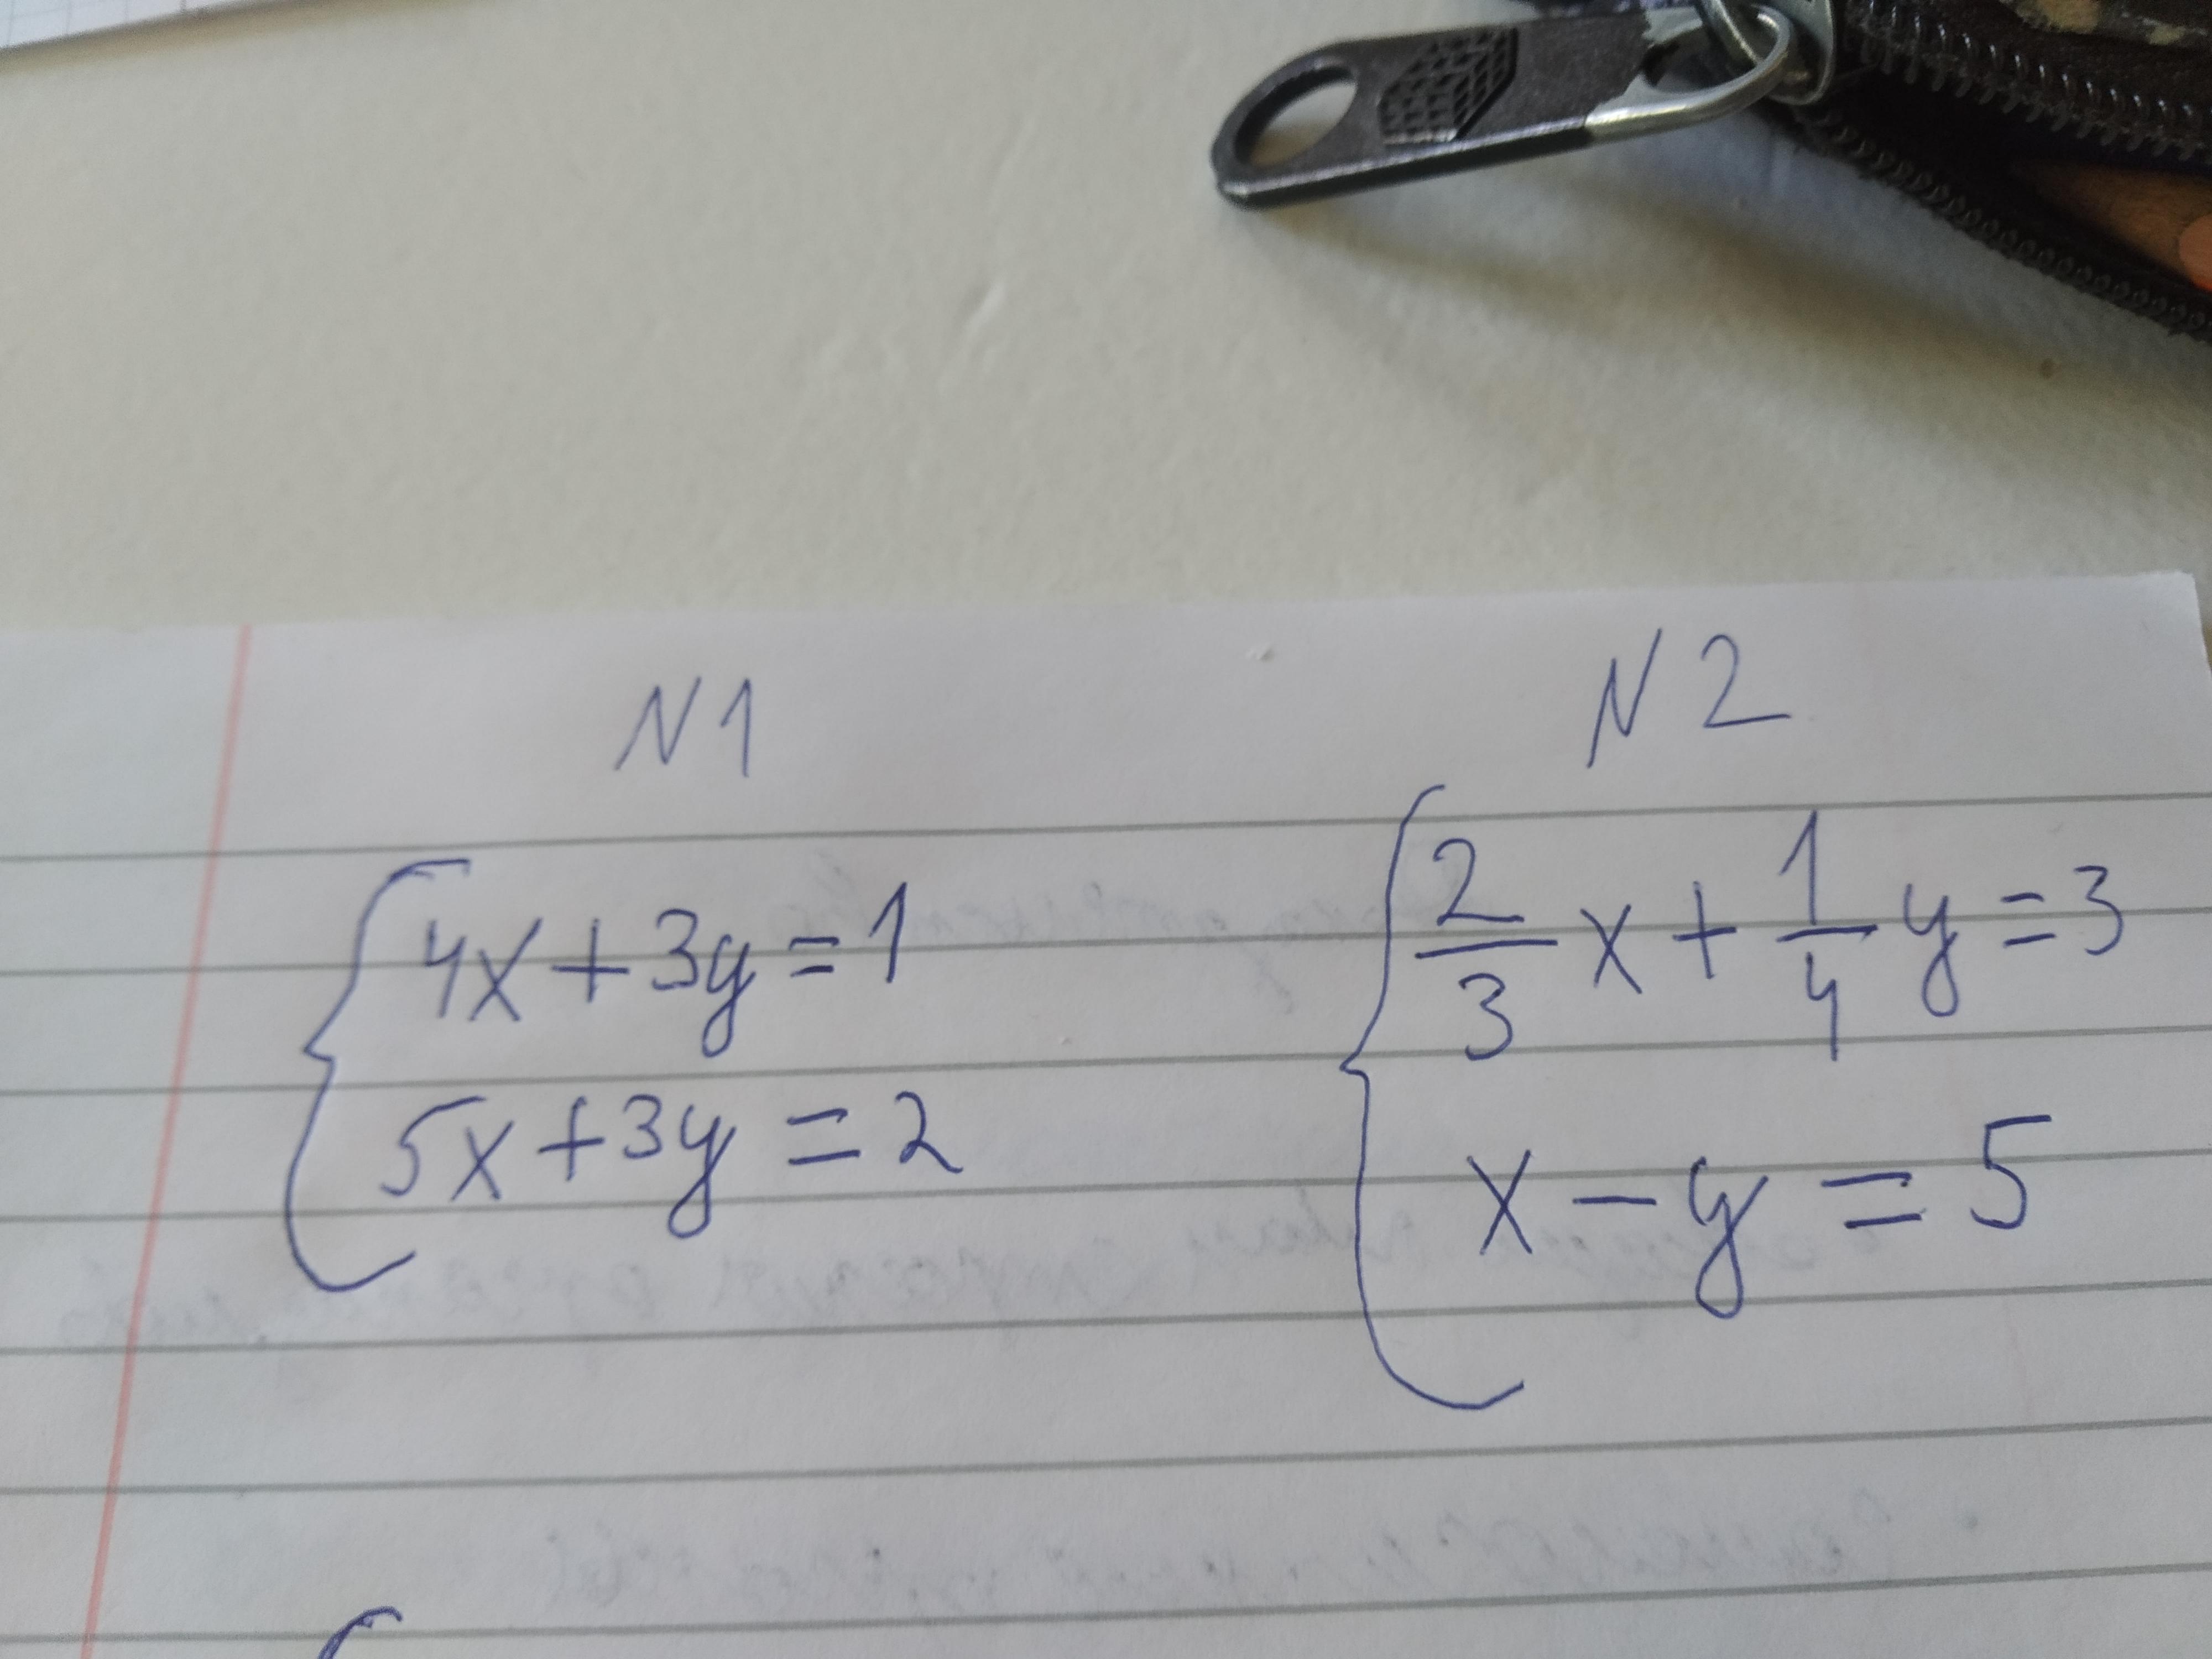 N1
4x+3y=1
5x+3y=2
N2
2/3 x + 1/4 y = 3
x - y = 5